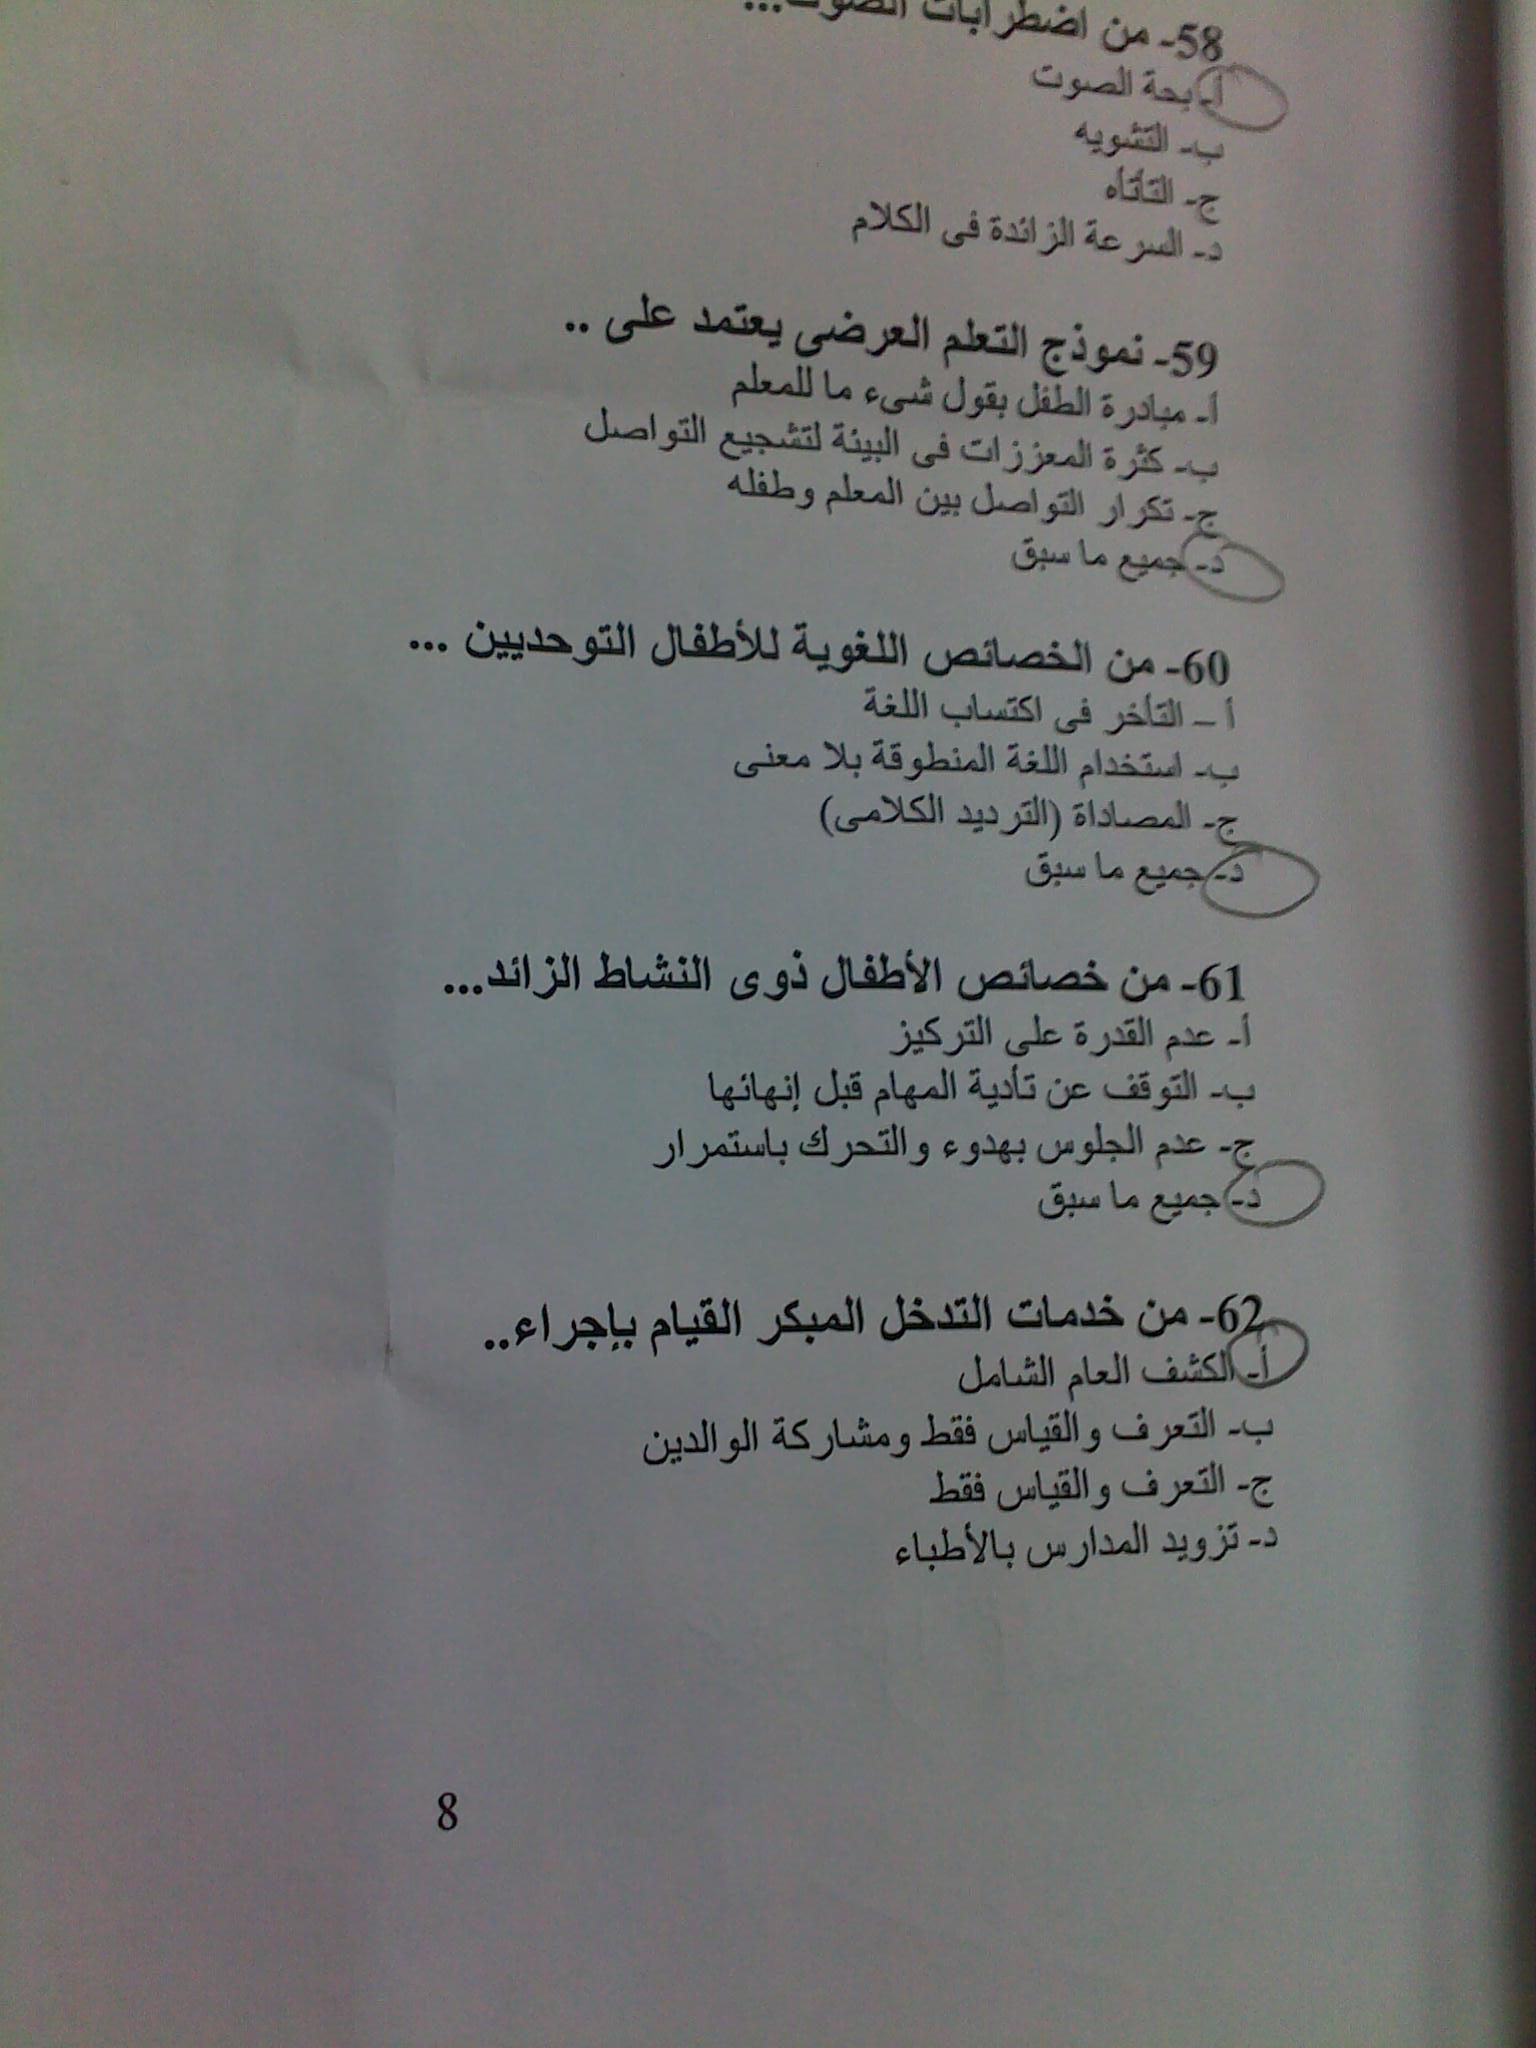 58- من اضطرابات الصوت...
أ- بحة الصوت
ب- التشويه
ج- التأتأه
د- السرعة الزائدة فى الكلام
59- نموذج التعلم العرضى يعتمد على ..
أ- مبادرة الطفل بقول شىء ما للمعلم
ب- كثرة المعززات فى البيئة لتشجيع التواصل
ج- تكرار التواصل بين المعلم وطفله
د- جميع ما سبق
60- من الخصائص اللغوية للأطفال التوحديين ...
أ – التأخر فى اكتساب اللغة
ب- استخدام اللغة المنطوقة بلا معنى
ج- المصاداة (الترديد الكلامى)
د- جميع ما سبق
61- من خصائص الأطفال ذوى النشاط الزائد...
أ- عدم القدرة على التركيز
ب- التوقف عن تأدية المهام قبل إنهائها
ج- عدم الجلوس بهدوء والتحرك باستمرار
د- جميع ما سبق
62- من خدمات التدخل المبكر القيام بإجراء..
أ- الكشف العام الشامل
ب- التعرف والقياس فقط ومشاركة الوالدين
ج- التعرف والقياس فقط
د- تزويد المدارس بالأطباء
8